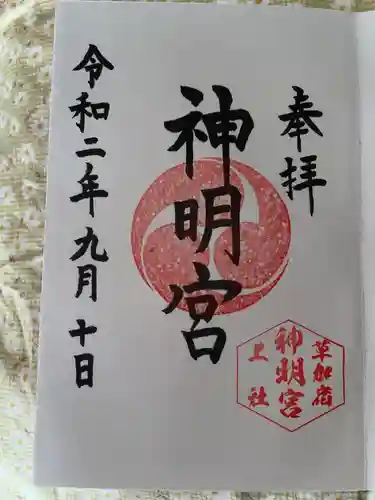 奉拝
神明宮
令和二年九月十日
草加宿
神明宮
上社